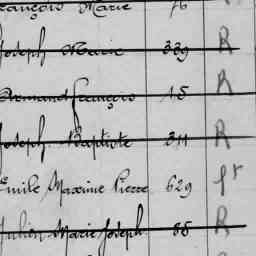 François Marie 76
Joseph Marie 339 R
Armand François 15 R
Joseph Baptiste 311 R
Emile Maxime Pierre 629 Pr
Julien Marie Joseph 85 R